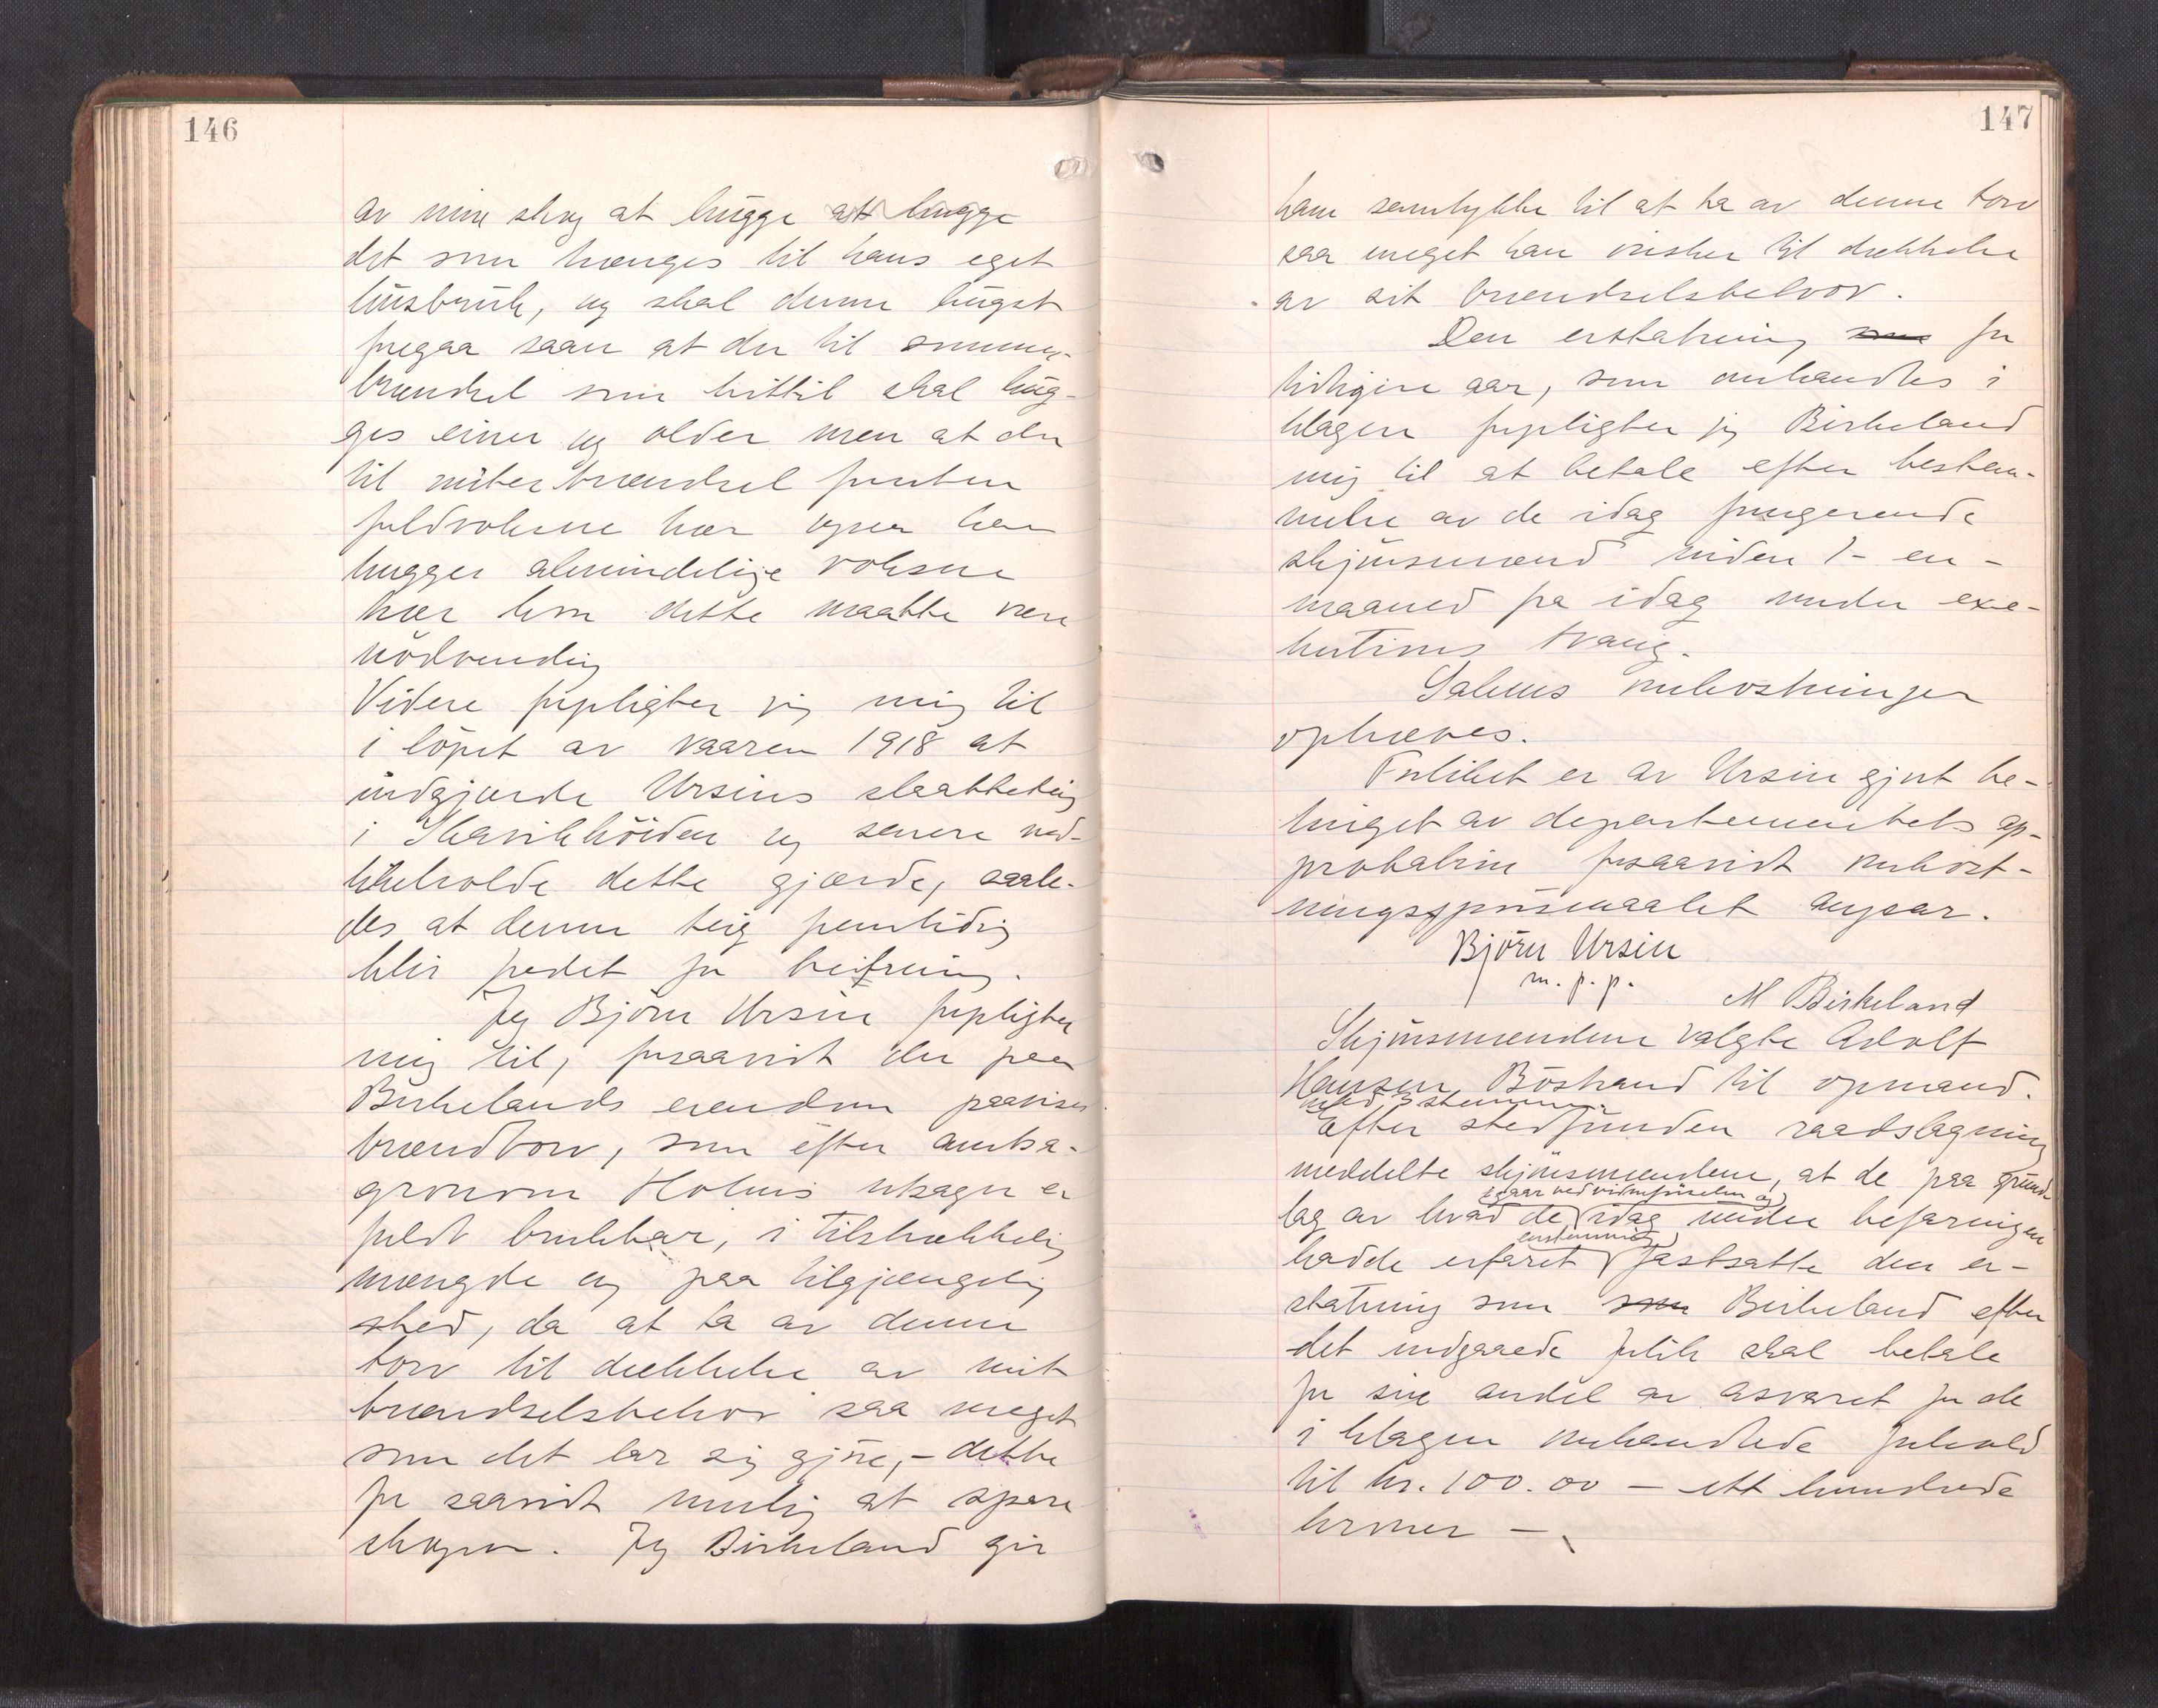 146
av min skog at hugge at hugge
det som trænges til hans eget
husbruk, og skal denne hugst
foregaa saan at der til sommer-
brændsel som hittil skal hug-
ges einer og older men at der
til vinterbrændsel foruten
fuldvoksne trær ogsaa kan
hugges almindelige voksne
trær hvor dette maatte være
nödvendig
Videre forpligter jeg mig til
i löpet av vaaren 1918 at
indgjærde Ursins slaatteteig
i Skarvikhöiden og senere ved-
likeholde dette gjærde, saale-
des at denne teig fremtidig
blir fredet for beitning.
Jeg Björn Ursin forpligter
mig til, forsaavidt der paa
Birkelands eiendom paavises
brændtorv, som efter amtsa-
gronom Holms utsagn er
fuldt brukbar, i tilstrækkelig
mængde og paa tilgjængelig
sted, da at ta av denne
torv til dækkelse av mit
brændselsbehov saa meget
som det lar sig gjöre, - dette
for saavidt mulig at spare
skogen. Jeg Birkeland gir
147
ham samtykke til at ta av denne torv
saa meget han önsker til dækkelse
av sit brændselsbehov.
Den erstatning som for
tidligere aar, som omhandles i
klagen forpligter jeg Birkeland
mig til at betale efter bestem-
melse av de idag fungerende
skjönsmænd inden 1- en -
maaned fra idag under exe-
kutions tvang.
Sakens omkostninger
ophæves.
Forliket er av Ursin gjort be-
tinget av departementets ap-
probation forsaavidt omkost-
ningsspörsmaalet angaar.
Björn Ursin
m. p. p.
M Birkeland
Skjönsmændene valgte Adolf
Hansen Böstrand til opmand.
med 3 stemmer
Efter stedfunden raadslagning
meddelte skjönsmændene, at de paa grund-
lag av hvad de igaar ved vidneförselen og idag under befaringen
hadde erfaret enstemmig fastsatte den er-
statning som som Birkeland efter
det indgaaede forlik skal betale
for sin andel av ansvaret for de
i klagen omhandlede forhold
til kr. 100.00 – ett hundrede
kroner –